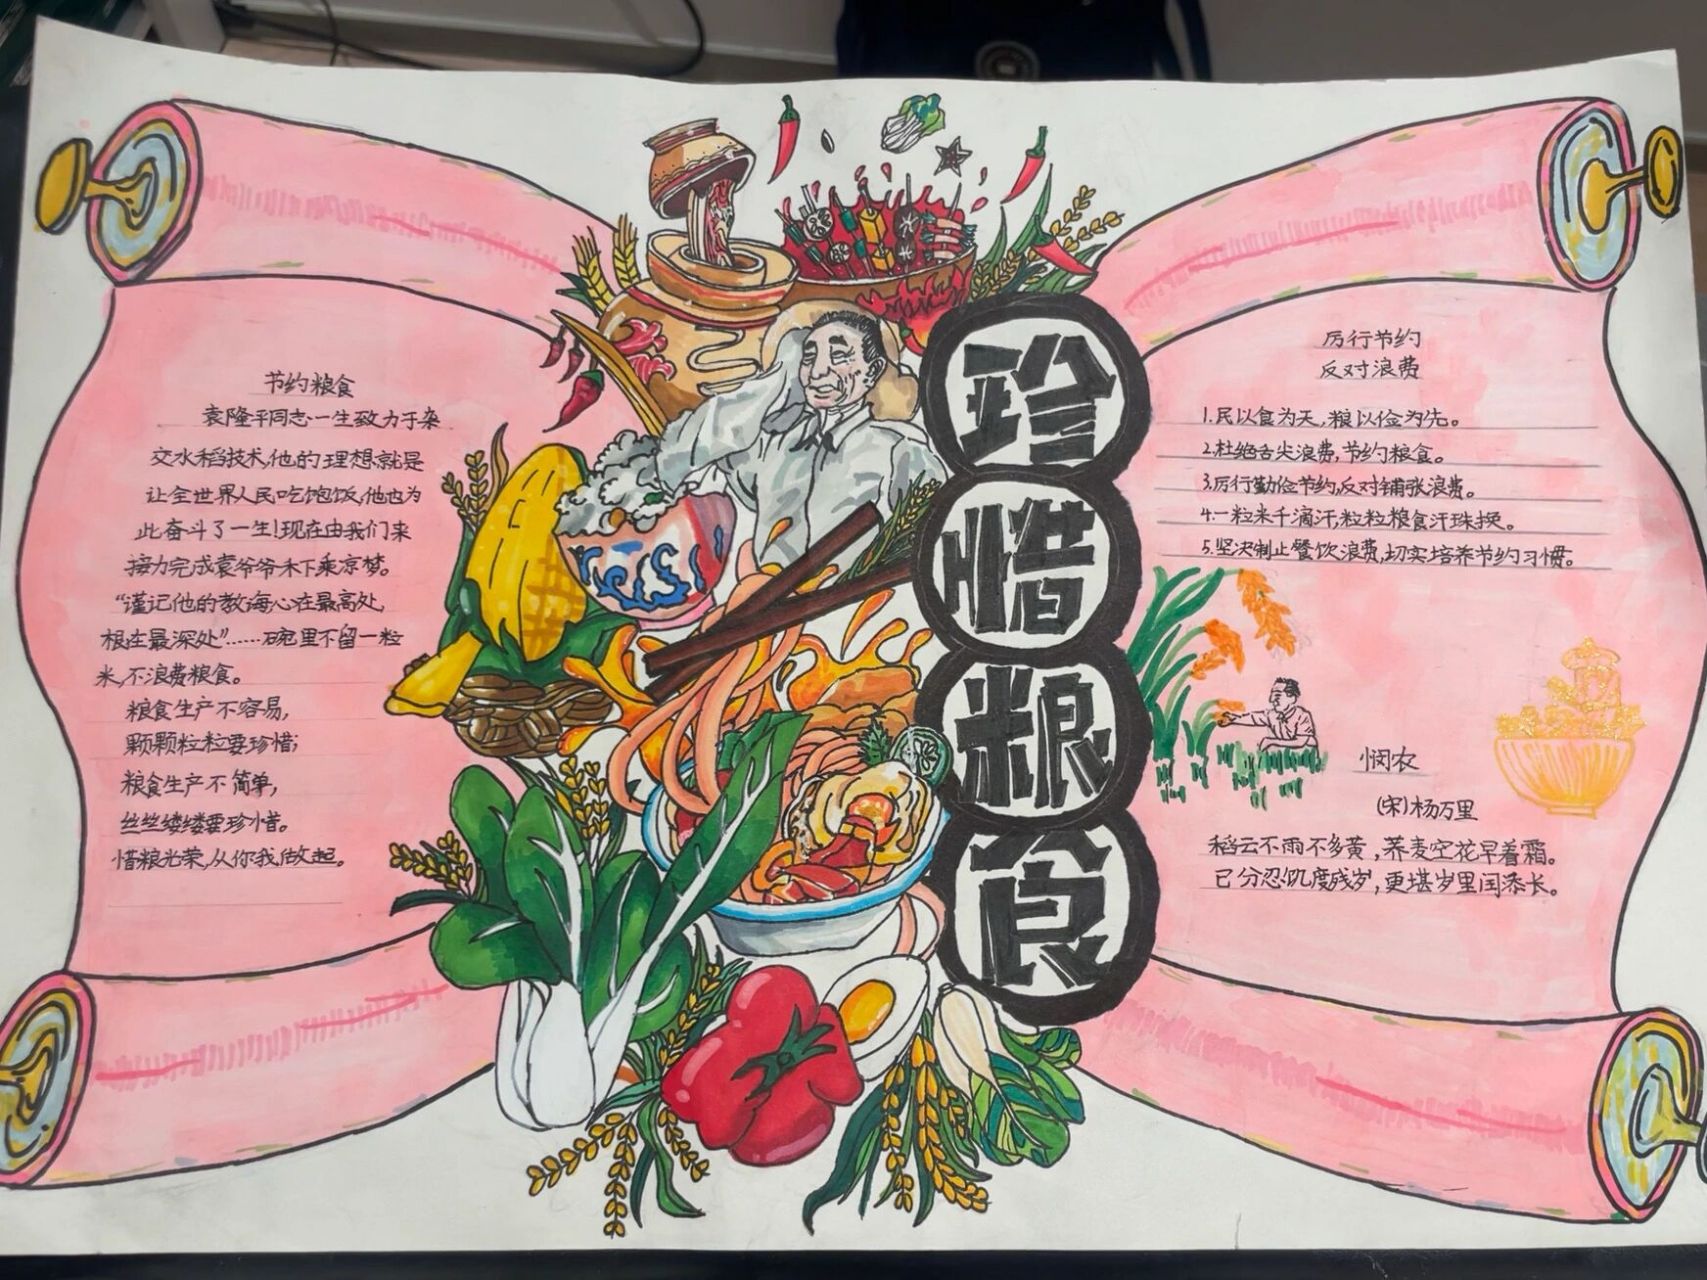 节约粮食
袁隆平同志一生致力于杂
交水稻技术,他的理想就是
让全世界人民吃饱饭,他也为
此奋斗了一生!现在由我们来
接力完成袁爷爷禾下乘凉梦。
“谨记他的教诲心在最高处,
根在最深处”……碗里不留一粒
米,不浪费粮食。
粮食生产不容易,
颗颗粒粒要珍惜;
粮食生产不简单,
丝丝缕缕要珍惜。
惜粮光荣,从你我做起。
珍
惜
粮
食
厉行节约
反对浪费
1.民以食为天,粮以俭为先。
2.杜绝舌尖浪费,节约粮食。
3.厉行勤俭节约,反对铺张浪费。
4.一粒米千滴汗,粒粒粮食汗珠换。
5.坚决制止餐饮浪费,切实培养节约习惯。
悯农
(宋)杨万里
稻云不雨不多黄,荞麦空花早着霜。
已分忍饥度残岁,更堪岁里闰添长。